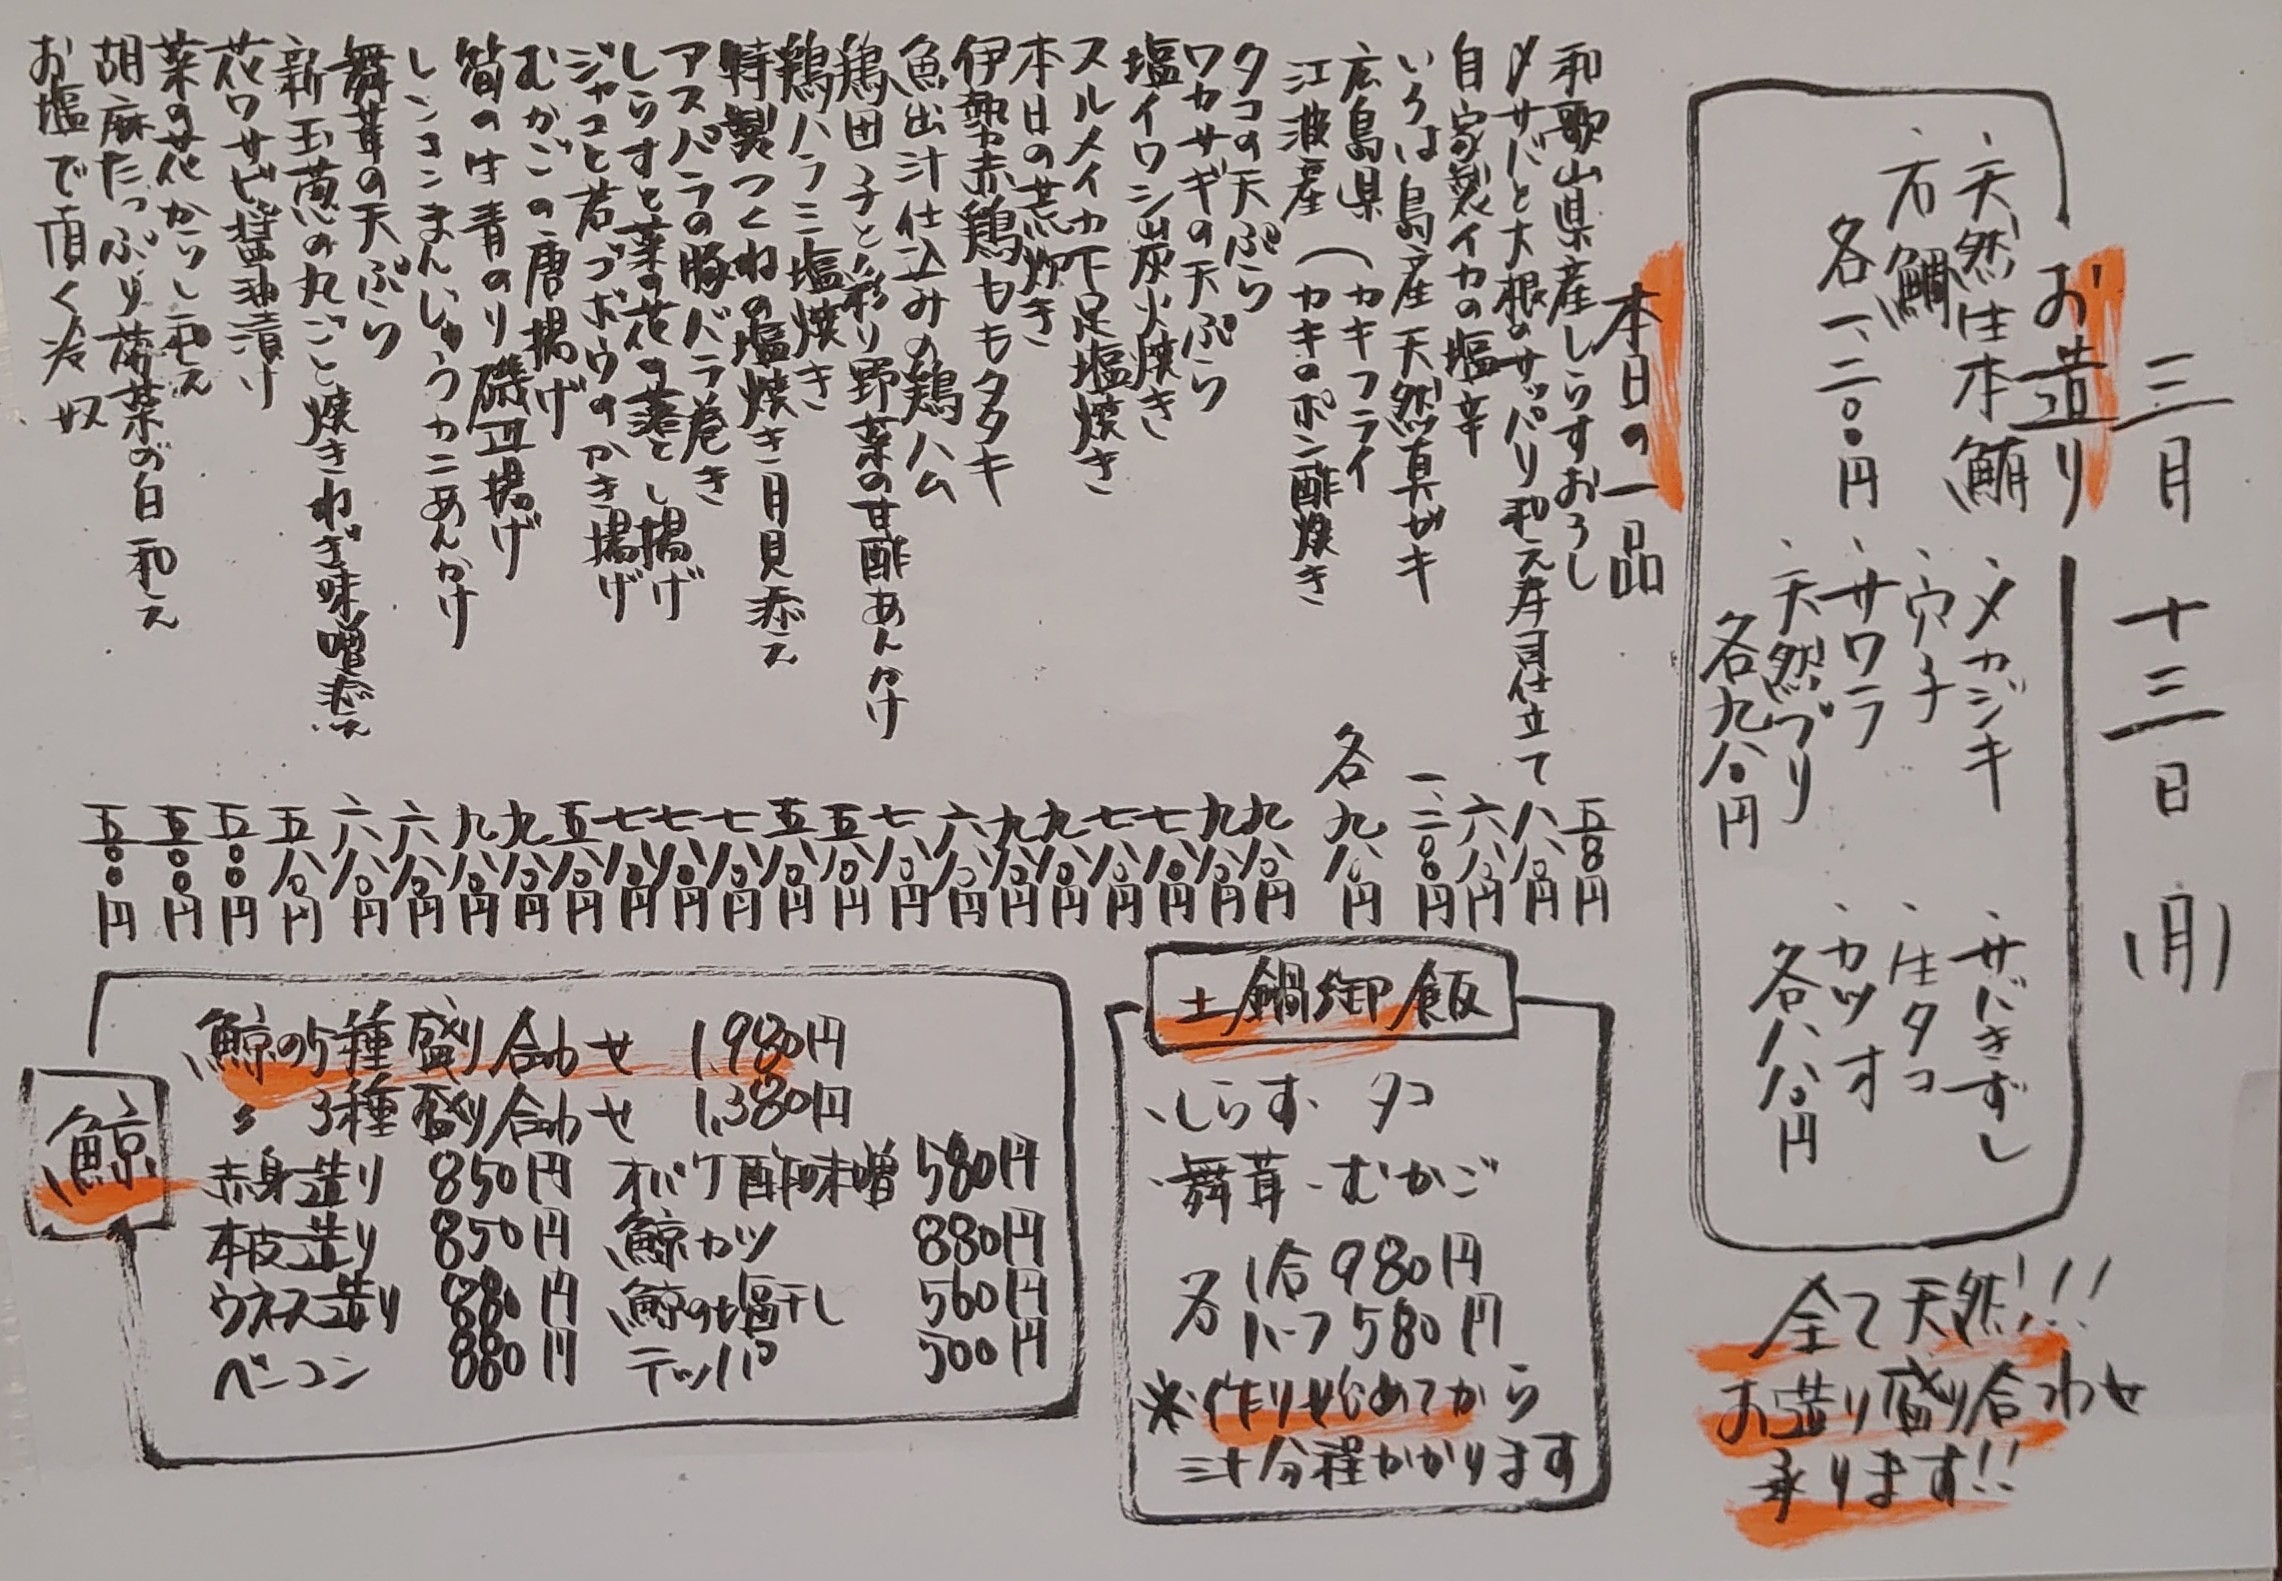 三月十三日(月)
お造り
、天然生本鮪
、石鯛
各一、二〇〇円
、メカジキ
、穴子
、サワラ
、天然ブリ
各九八〇円
、サバきずし
、生タコ
、カツオ
各八八〇円
全て天然!!
お造り盛り合わせ
承ります!!
本日の一品
和歌山県産しらすおろし 五八〇円
〆サバと大根のサッパリ和え寿司仕立て 八八〇円
自家製イカの塩辛 六八〇円
いろは島産天然真ガキ 一、二〇〇円
広島県江波産(カキフライ
(カキのポン酢焼き
各九八〇円
タコの天ぷら 九八〇円
ワカサギの天ぷら 九八〇円
塩イワシ炭火焼き 七八〇円
スルメイカ下足塩焼き 七八〇円
本日の荒炊き 九八〇円
伊勢赤鶏ももタタキ 九八〇円
魚出汁仕込みの鶏ハム 六八〇円
鶏団子と彩り野菜の甘酢あんかけ 七八〇円
鶏ハラミ塩焼き 五八〇円
特製つくねの塩焼き月見添え 五八〇円
アスパラの豚バラ巻き 七八〇円
しらすと菜の花の落とし揚げ 七八〇円
ジャコと若ゴボウのかき揚げ 七八〇円
むかごの唐揚げ 五八〇円
筍の生青のり磯辺揚げ 九八〇円
レンコンまんじゅうカニあんかけ 九八〇円
舞茸の天ぷら 六八〇円
新玉葱の丸ごと焼きねぎ味噌添え 六八〇円
花ワサビ醤油漬け 五八〇円
菜の花からし和え 五〇〇円
胡麻たっぷり菠菜の白和え 五〇〇円
お塩で頂く冷奴 五〇〇円
土鍋御飯
、しらす、タコ
、舞茸、むかご
各1合980円
ハーフ580円
※作り始めてから
三十分程かかります
鯨
鯨の5種盛り合わせ 1,980円
〃 3種盛り合わせ 1,380円
赤身造り 850円 オバケ酢味噌 580円
本皮造り 850円 鯨カツ 880円
ウネス造り 880円 鯨の塩干し 560円
ベーコン 880円 テッパ 500円